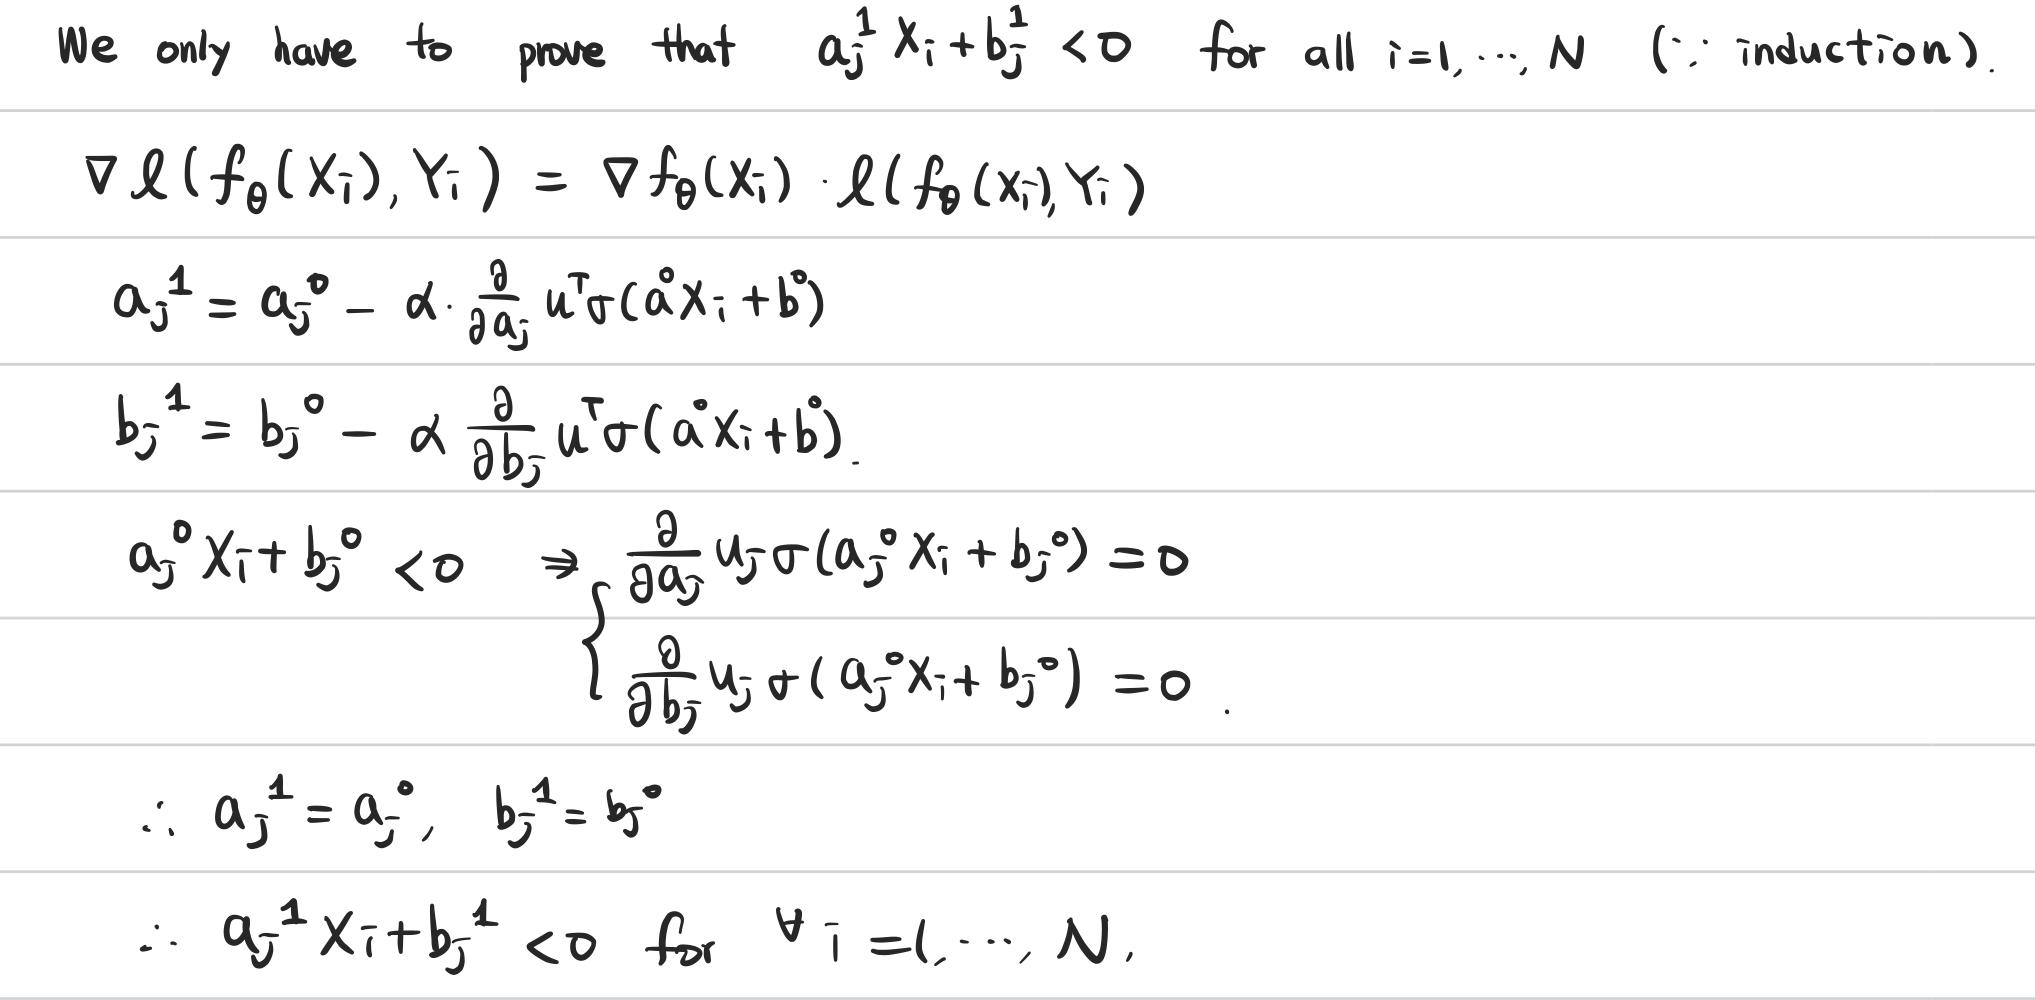 We only have to prove that a_j^1 X_i + b_j^1 < 0 for all i=1, ..., N (∵ induction).
∇ℓ(f_θ(X_i), Y_i) = ∇f_θ(X_i) · ℓ(f_θ(X_i), Y_i)
a_j^1 = a_j^0 − α · ∂/∂a_j u^T σ(a^0 X_i + b^0)
b_j^1 = b_j^0 − α ∂/∂b_j u^T σ(a^0 X_i + b^0).
a_j^0 X_i + b_j^0 < 0 ⇒ { ∂/∂a_j u_j σ(a_j^0 X_i + b_j^0) = 0
∂/∂b_j u_j σ(a_j^0 X_i + b_j^0) = 0.
∴ a_j^1 = a_j^0, b_j^1 = b_j^0
∴ a_j^1 X_i + b_j^1 < 0 for ∀ i = 1, ..., N.